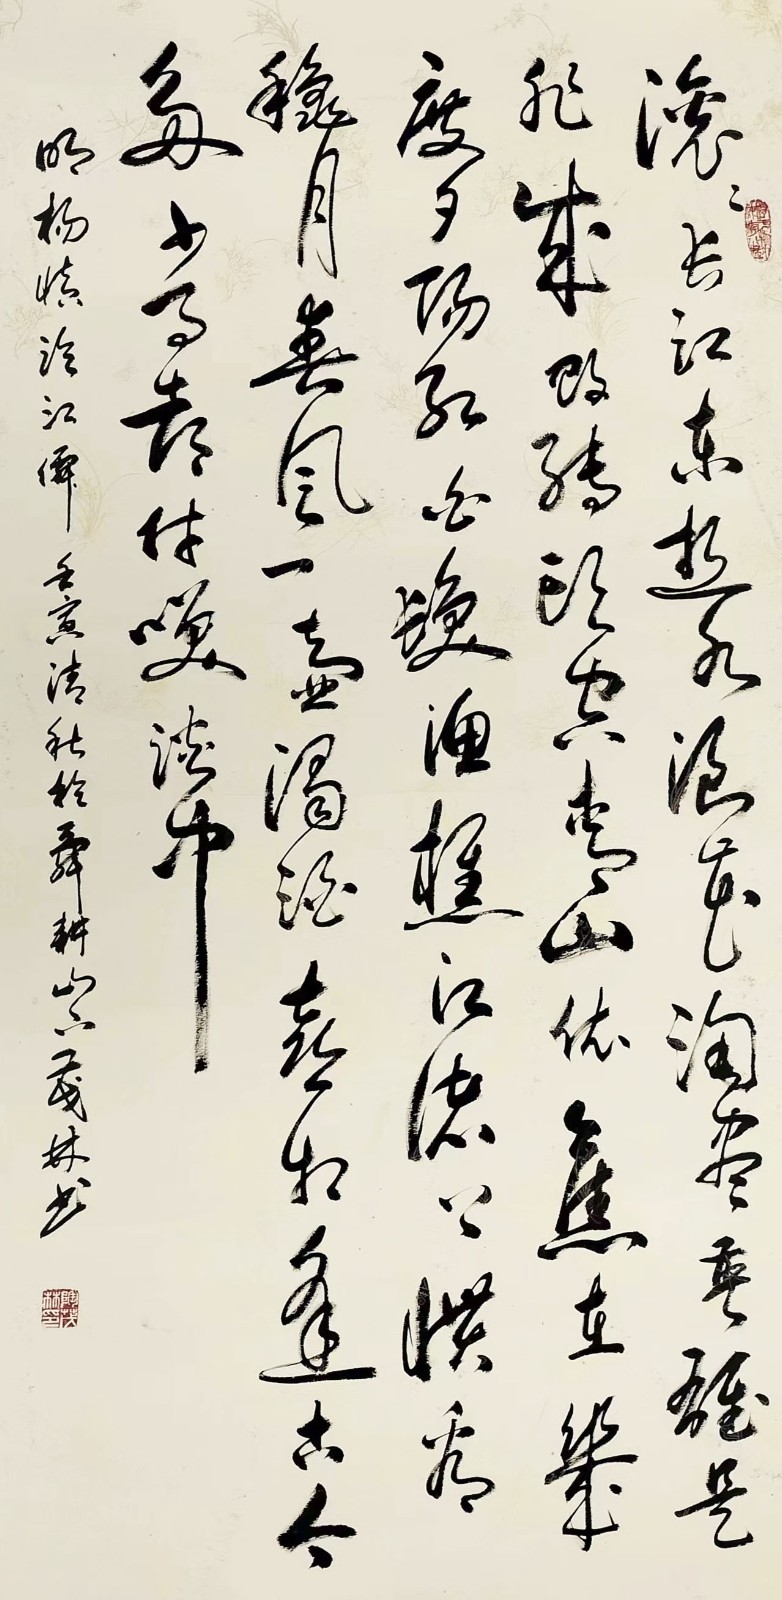 滚〻长江东逝水浪花淘尽英雄是
非成败转头空青山依旧在几
度夕阳红白发渔樵江渚上惯看
秋月春风一壶浊酒喜相逢古今
多少事都付笑谈中
明杨慎临江仙 壬寅清秋于舜耕山下茂林书